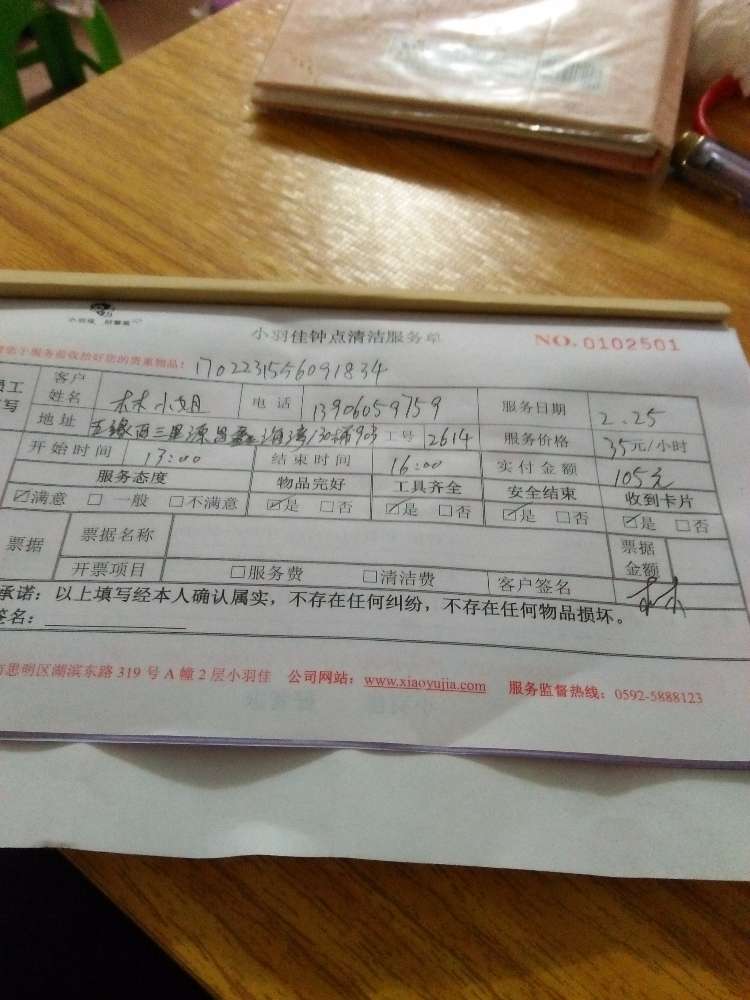 小羽佳钟点清洁服务单 NO.0102501
1702231556091834
客户姓名 林小姐 电话 13906059759 服务日期 2.25
地址 工号 2614 服务价格 35元/小时
开始时间 13:00 结束时间 16:00 实付金额 105元
服务态度 物品完好 工具齐全 安全结束 收到卡片
☑满意 □一般 □不满意 ☑是 □否 ☑是 □否 ☑是 □否 ☑是 □否
票据 票据名称 票据金额
开票项目 □服务费 □清洁费 客户签名 林
承诺：以上填写经本人确认属实，不存在任何纠纷，不存在任何物品损坏。
签名：
思明区湖滨东路319号A幢2层小羽佳 公司网站：www.xiaoyujia.com 服务监督热线：0592-5888123